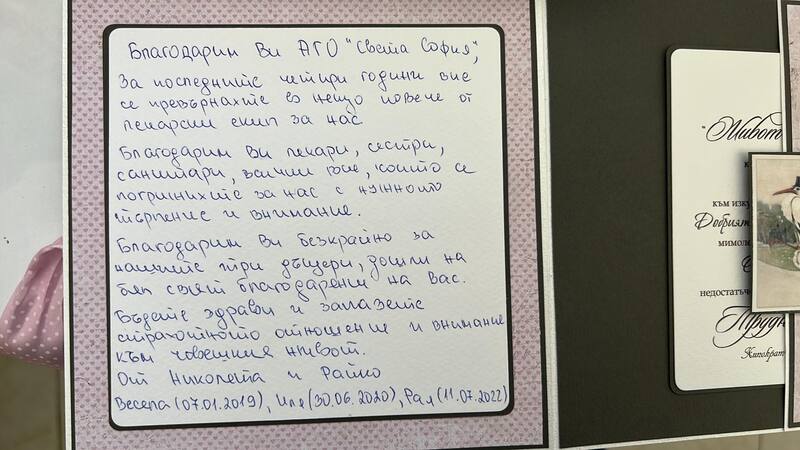 Благодарим Ви АГО "Света София",
За последните четири години вие
се превърнахте в нещо повече от
лекарски екип за нас
Благодарим Ви лекари, сестри,
санитари, всички вие, които се
погрижихте за нас с нужното
търпение и внимание.
Благодарим Ви безкрайно за
нашите три дъщери, дошли на
бял свят благодарение на Вас.
Бъдете здрави и запазете
страхотното отношение и внимание
към човешкия живот.
От Николета и Райко
Весела (07.01.2019), Ия (30.06.2020), Рая (11.07.2022)
"Живот
към изку
Добрият
мимол
недостатъч
Трудн
Хипократ